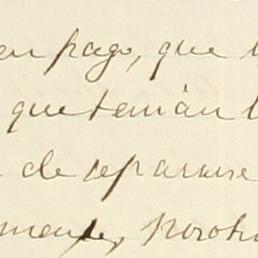 en pago, que
que tenian l
de separarse
mente,